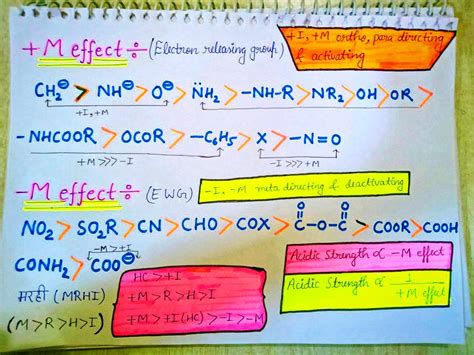 +M effect ÷ (Electron releasing group)
+I, +M ortho, para directing
& activating
CH₂⊖ > NH⊖ > O⊖ > N̈H₂ > -NH-R > NR₂ > OH > OR >
+I, +M
- NHCOOR > OCOR > -C₆H₅ > X > -N=O
+M >>> -I
-I >>> +M
-M effect ÷ (EWG)
-I, -M meta directing & deactivating
NO₂ > SO₂R > CN > CHO > COX > C(=O)-O-C(=O) > COOR > COOH
CONH₂ > COO⊖
-M > +I
Acidic Strength ∝ -M effect
Acidic Strength ∝ 1/+M effect
मरही (MRHI)
(M > R > H > I)
HC > +I
+M > R > H > I
+M > +I (HC) > -I > -M